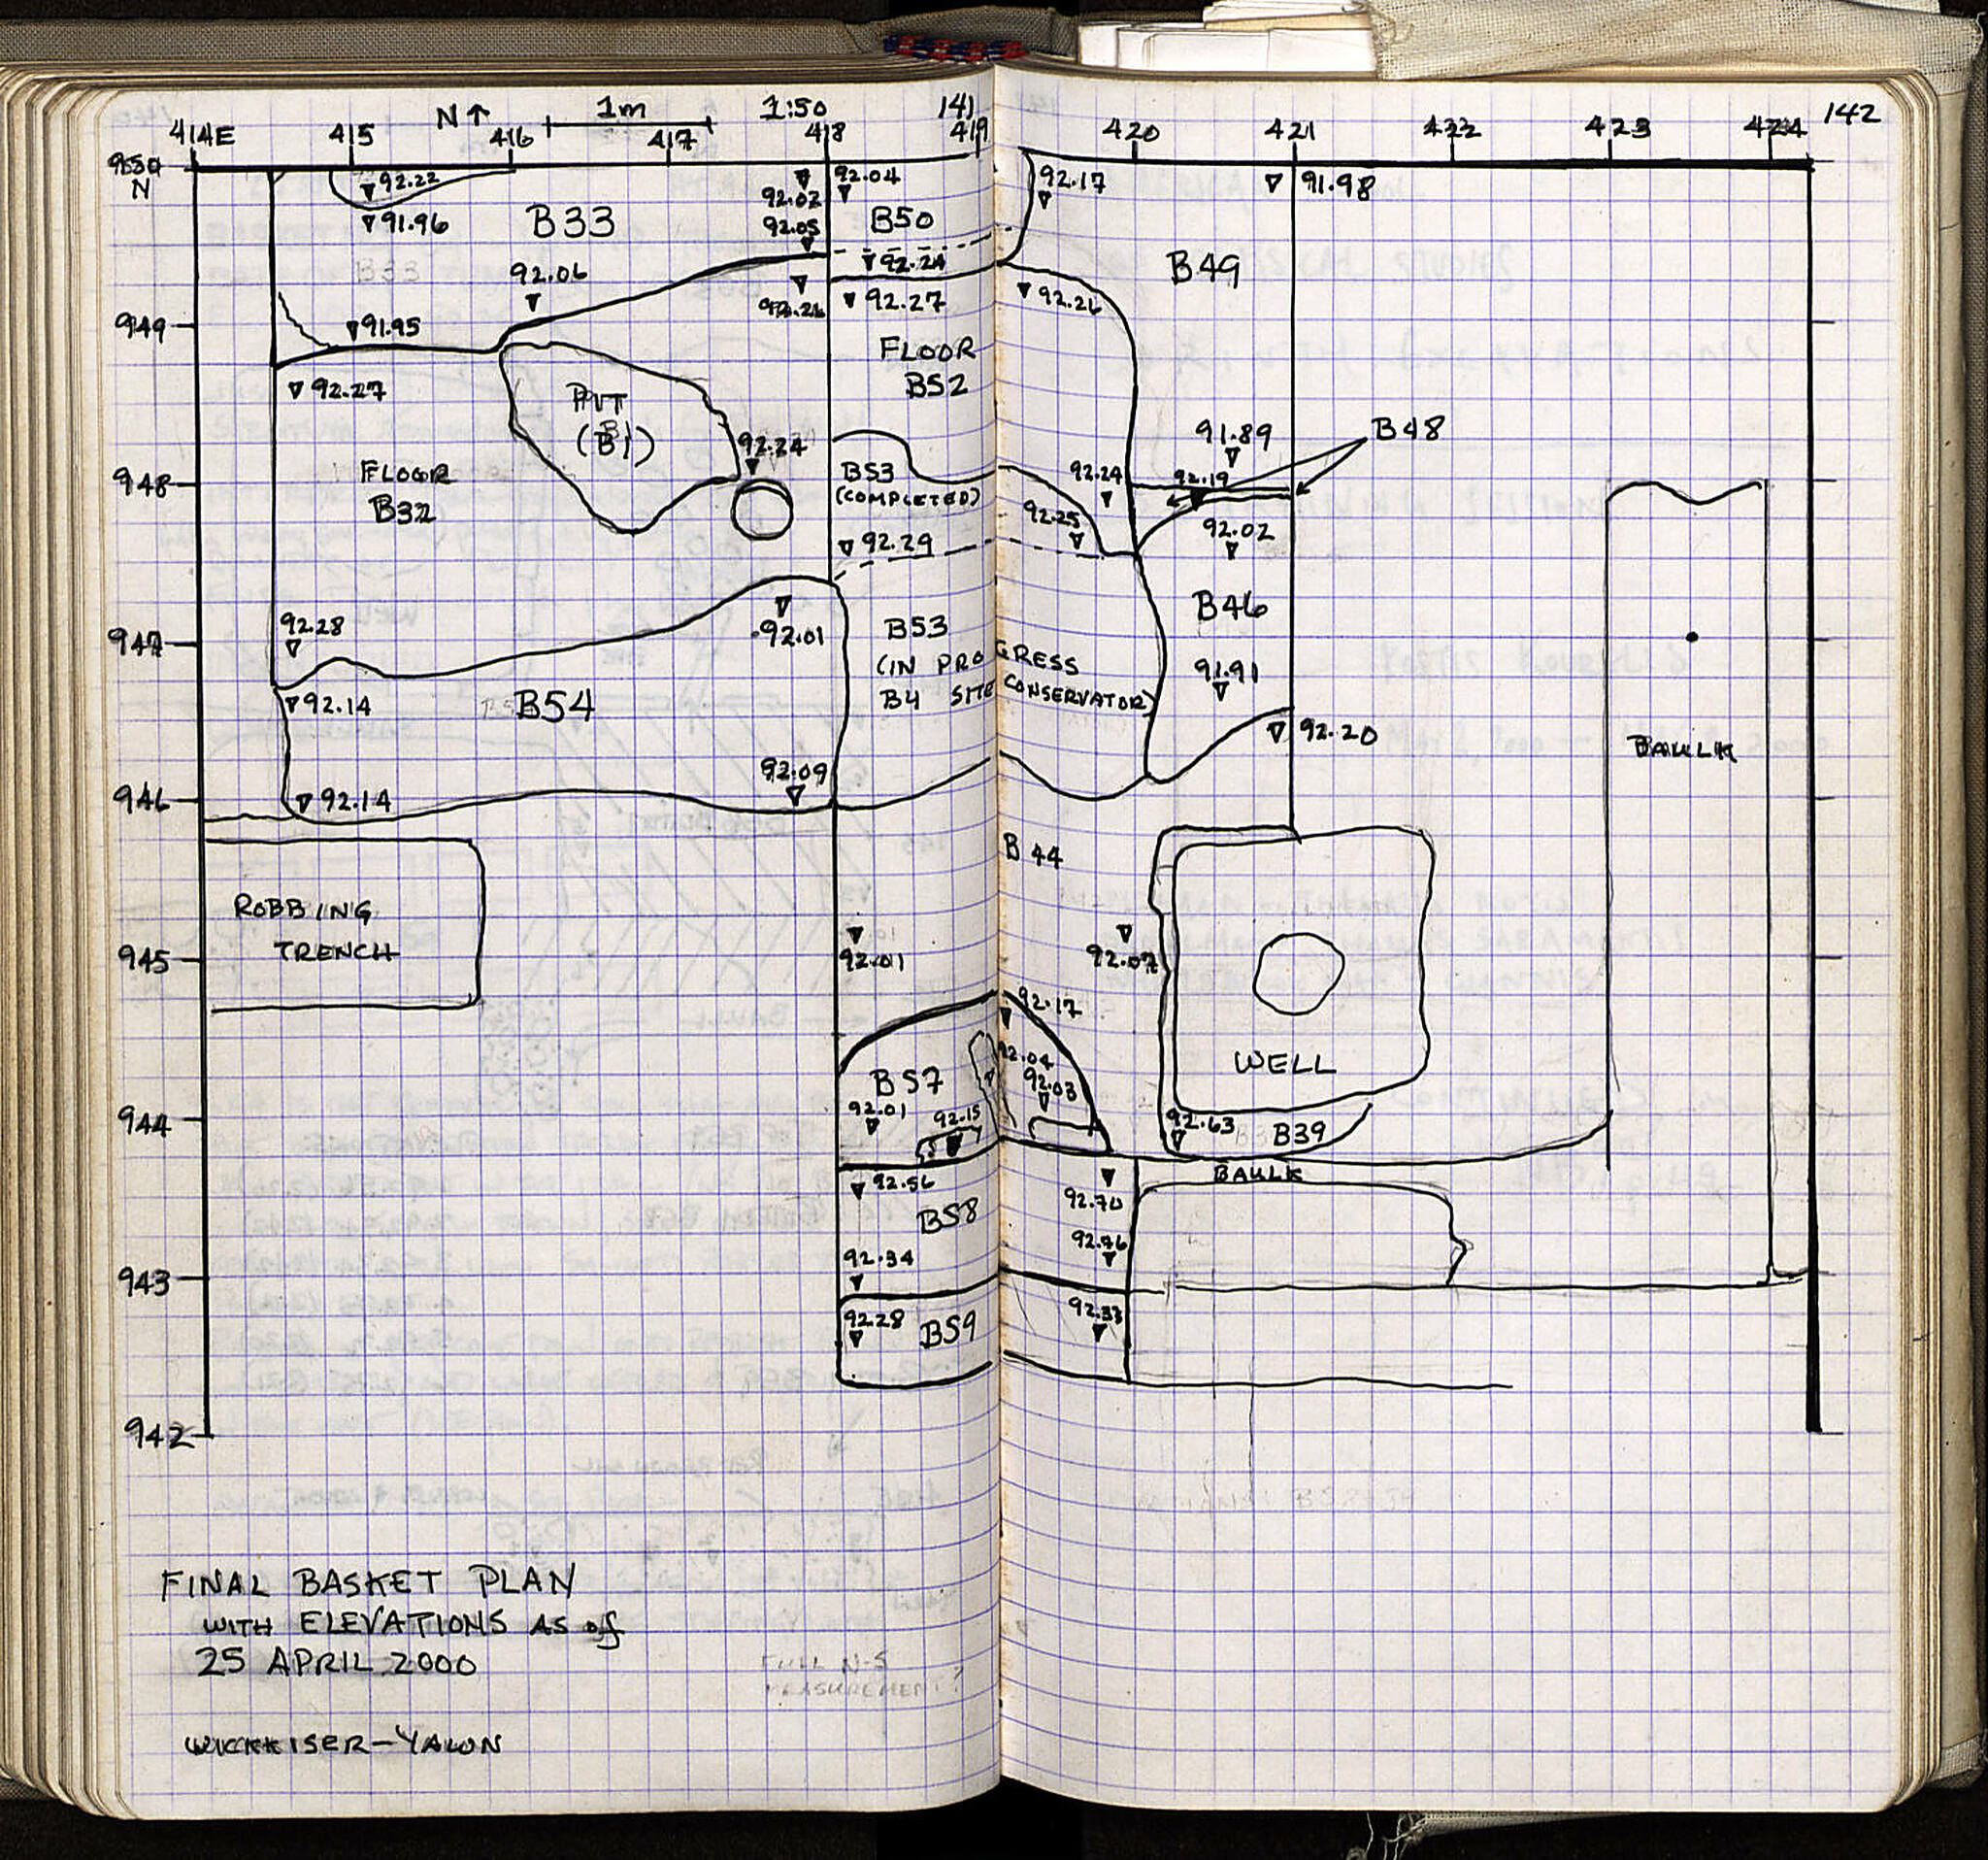 N↑
1m
1:50
141
142
414E
415
416
417
418
419
420
421
422
423
424
950
N
949
948
947
946
945
944
943
942
92.22
91.96
B33
B33
92.02
92.05
92.06
91.95
92.04
B50
92.24
92.27
92.17
91.98
B49
92.26
92.27
FLOOR
B32
PIT
(B1)
92.24
FLOOR
B52
B53
(COMPLETED)
92.29
92.24
92.25
91.89
B48
92.19
92.02
B46
91.91
92.20
92.28
92.01
B53
(IN PROGRESS
B4 SITE CONSERVATOR)
92.14
B54
92.09
92.14
BAULK
B44
ROBBING
TRENCH
92.01
92.07
92.17
WELL
B57
92.04
92.03
92.01
92.15
92.63
B39
BAULK
92.56
B58
92.70
92.34
92.76
92.28
B59
92.33
FINAL BASKET PLAN
WITH ELEVATIONS AS of
25 APRIL 2000
FULL N-S
MEASUREMENT?
WICKKISER-YALON